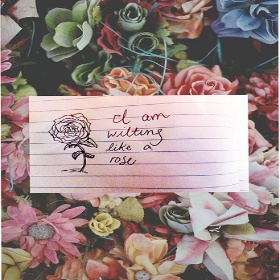 I am
wilting
like a
rose